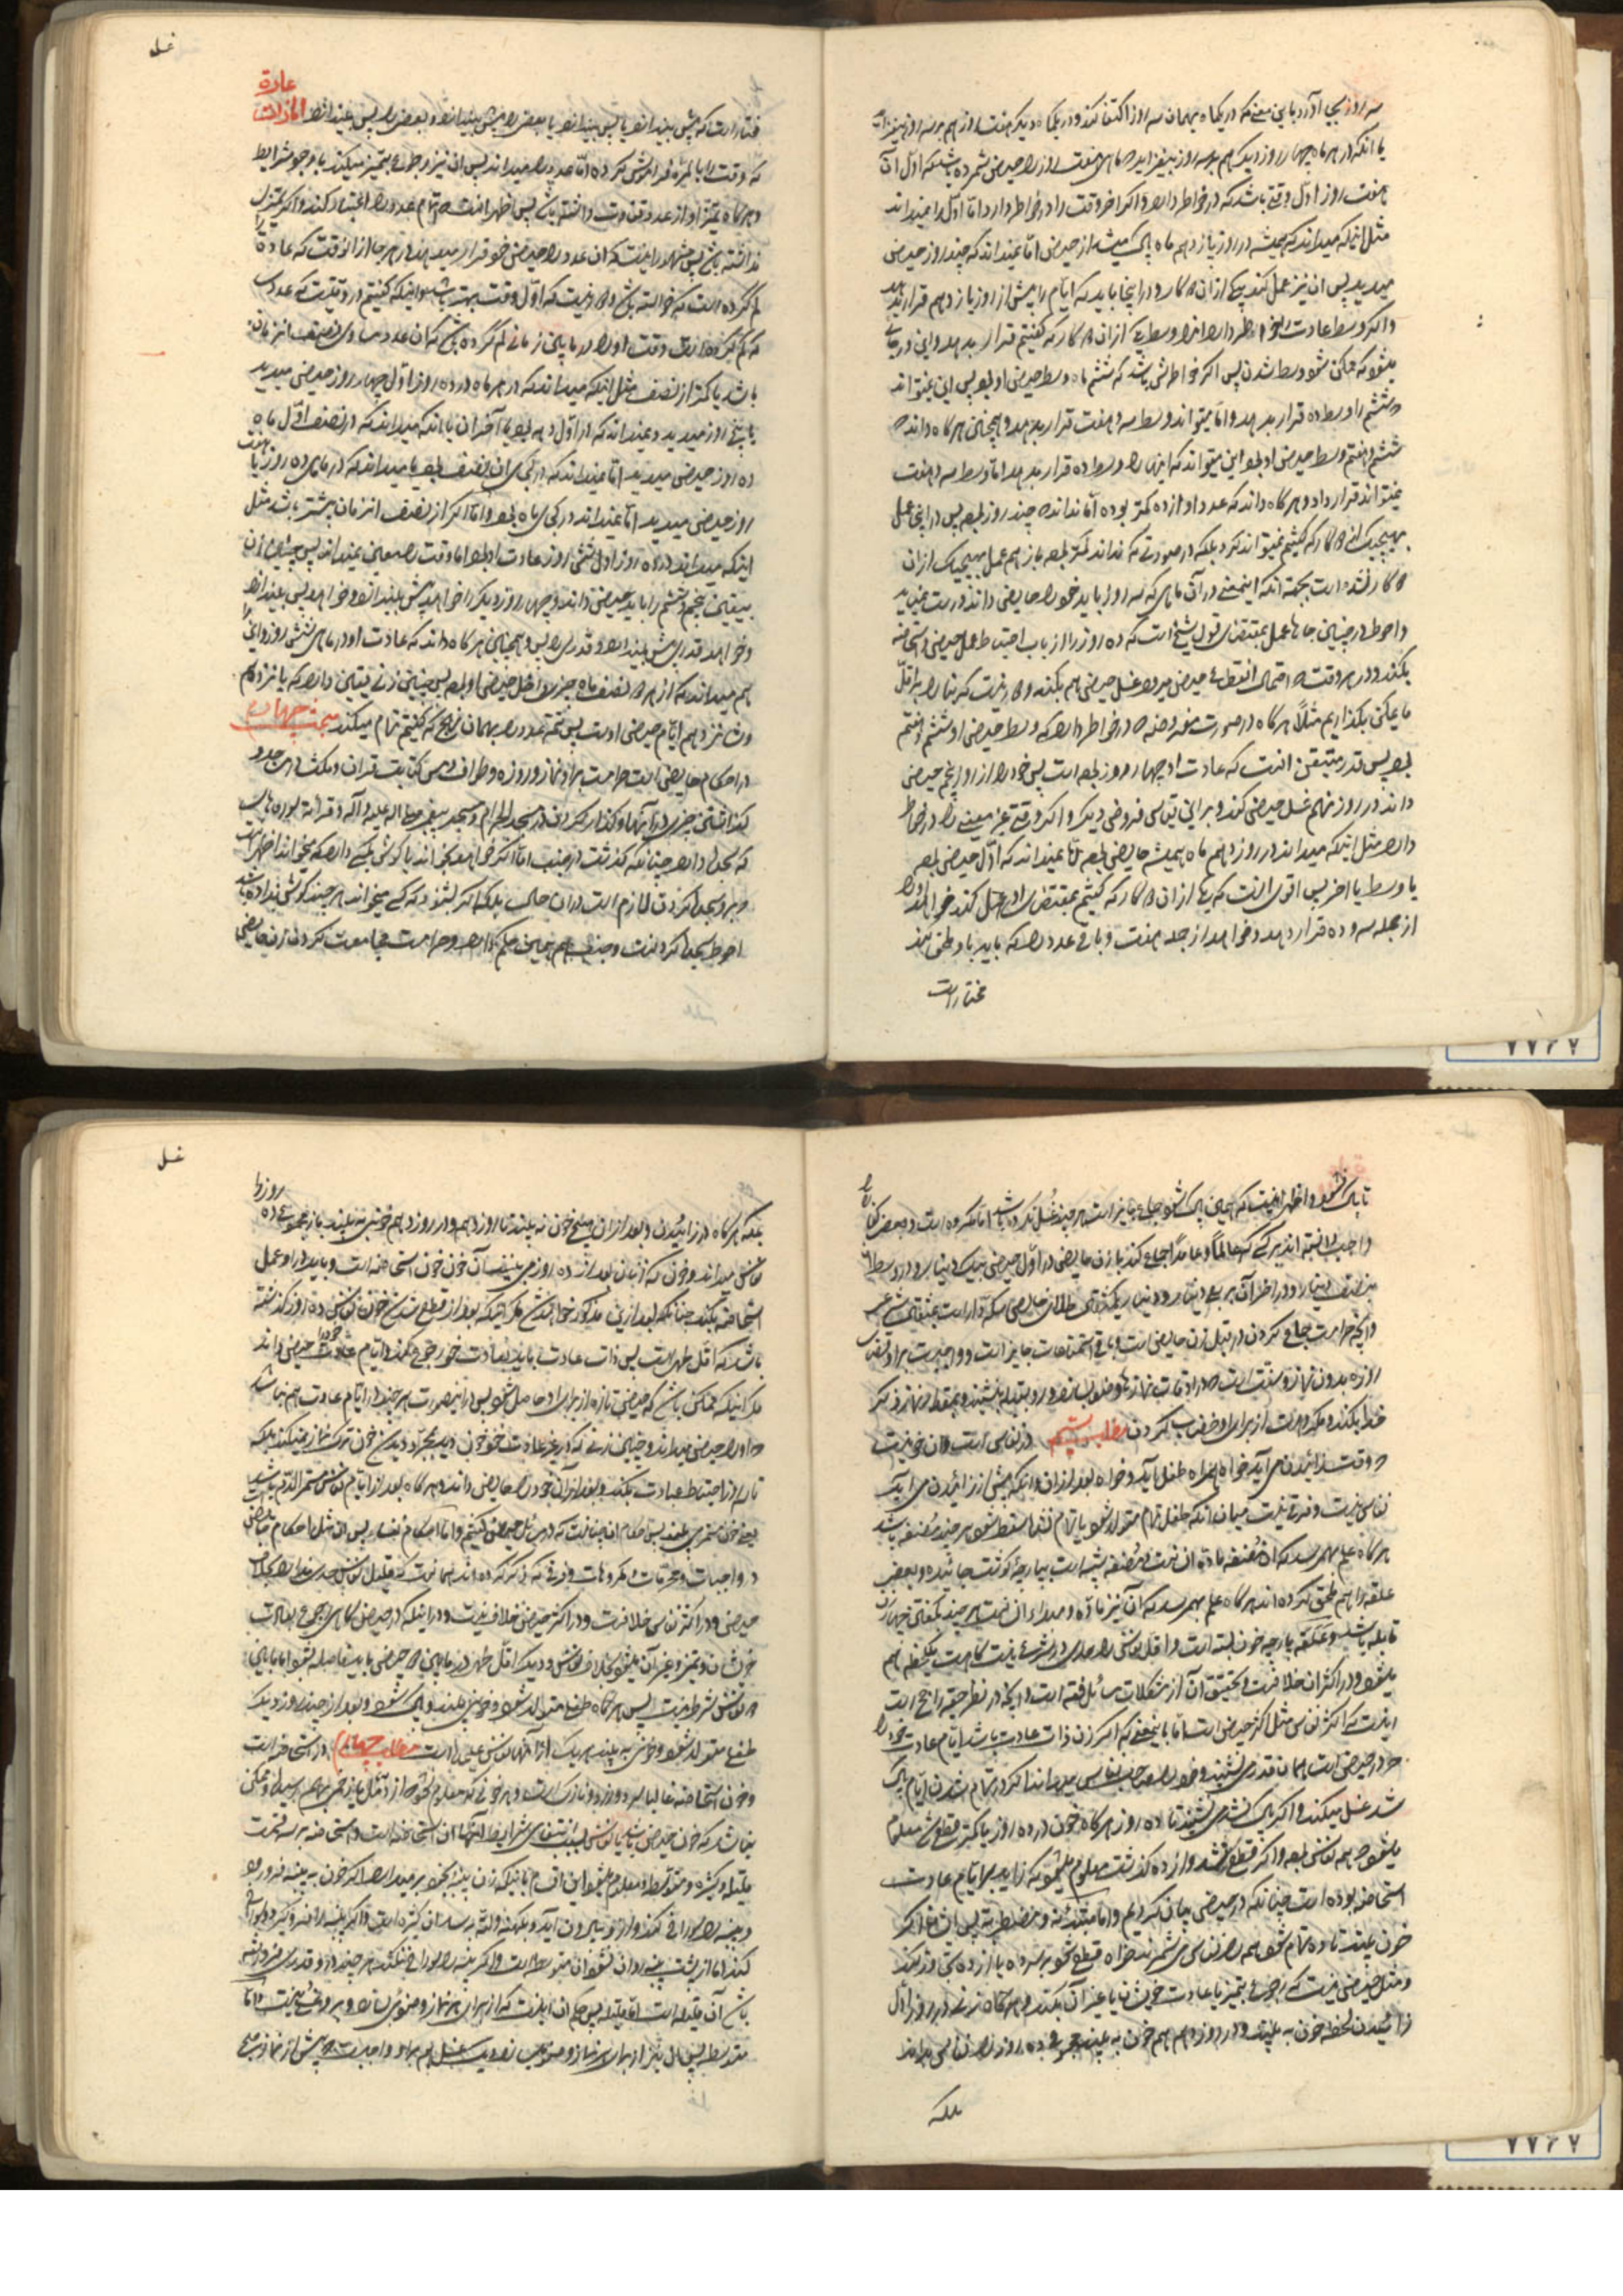 سه روز بجا آورد باین معنی که در یکماه بهمان سه روز اکتفا کند و در یکماه دیگر هفت روز هم بر سه روز بیفزاید
یا آنکه در هر ماه چهار روز دیگر هم بر سه روز بیفزاید تا ماهی هفت روز را حیض شمرده باشد که اول آن
هفت روز اول وقتی باشد که در خاطر دارد و اگر آخر وقت را در خاطر دارد اما اول را نمیداند
مثل اینکه میداند که همیشه در روز یازدهم ماه پاک میشد از حیض اما نمیداند که چند روز حیض
میدید پس آن نیز عمل کند بیکی از آن کار و در اینجا باید که ایام را پیش از روز یازدهم قرار بدهد
و اگر وسط عادت خود را در خاطر دارد وسط یکی از آن کار که گفتیم قرار بدهد و این در جایی
میشود که ممکن شود وسط شدن پس اگر خاطرش باشد که ششم ماه وسط حیض او بود پس این نمیتواند
ششم را وسط ده قرار بدهد و اما میتواند وسط سه و هفت قرار بدهد و همچنین هرگاه داند که
ششم و هفتم وسط حیض او بود این میتواند که اینها را وسط ده قرار بدهد اما وسط سه و هفت
نمیتواند قرار داد و هرگاه داند که عدد او از ده کمتر بوده اما نداند که چند روز بود پس در اینجا عمل
بهیچیک از کار که گفتیم نمیتواند کرد بلکه در صورتی که نداند کمتر بود باز هم عمل بهیچیک از آن
و احوط در چنین جاها عمل بمقتضای قول شیخ است که ده روز را از باب احتیاط عمل حیض و استحاضه
بکند و در هر وقت که احتمال انقطاع حیض میرود غسل حیض هم بکند
ما یمکن بگذاریم مثلاً هرگاه در صورت مفروضه در خاطر دارد که وسط حیض او ششم و هفتم
بود پس قدر متیقن آنست که عادت او چهار روز بوده است پس خود را از روز پنجم حیض
داند و در روز نهم غسل حیض کند و بر این قیاس فروض دیگر و اگر وقتی غیر معینی را در خاطر
دارد مثل اینکه میداند در روز دهم ماه همیشه حایض بود اما نمیداند که اول حیض بود
یا وسط یا آخر پس اقوی آنست که بیکی از آن کار که گفتیم بمقتضای او عمل کند خواهد او را
از جمله سه و ده قرار دهد و خواهد از جمله هفت و باقی عدد را که باید باو ملحق کند
مختار است
غسل
عادة
مختار است که پیش بیندازد یا پس بیندازد یا بعضی را پیش بیندازد و بعضی را پس بیندازد اما زنی است
که وقت را بالمره فراموش کرده اما عدد را میداند پس آن نیز رجوع بتمیز میکند با وجود شرایط
و هرگاه تمیز او از عدد و وقت دانسته باشد پس اظهر آنست که تمام عدد را اعتبار کند و اگر تمیز را
نداشته باشد پس مشهور اینست که آن عدد را حیض خود قرار میدهد در هر جا از آن وقت که عادة
گم کرده است که خواسته باشد
که گم کرده است وقت او را در ما بین زمانی گم کرده باشد که آن عدد مساوی نصف آن زمان
باشد یا کمتر از نصف مثل اینکه میداند که در هر ماه در ده روز اول چهار روز حیض میدید
یا پنج روز میدید و نمیداند که در اول دهه بود یا آخر آن یا آنکه میداند که در نصف اول ماه
ده روز حیض میدید اما نمیداند که در کجای آن نصف بود یا میداند که در ماهی ده روز یا هفت
روز حیض میدید اما نمیداند در کجای ماه بود و اما اگر از نصف آن زمان بیشتر باشد مثل
اینکه میداند در ده روز اول شش روز عادت او بود اما وقت را معین نمیداند پس چنین زن
بیقین پنجم و ششم را باید حیض داند و چهار روز دیگر را خواهد پیش بیندازد و خواهد پس بیندازد
و خواهد قدری پیش بیندازد و قدری را پس و همچنین هرگاه داند که عادت او در ماهی شش روز و این را
هم میداند که از هر نصف ماه چیزی داخل حیض او بود پس چنین زنی یقین دارد که پانزدهم
و شانزدهم ایام حیض او است پس تتمه عدد را بهمان نهج که گفتیم تمام میکند مبحث چهارم
در احکام حایض است حرامست بر او نماز و روزه و طواف و مس کتابت قرآن و مکث در مساجد و
گذاشتن چیزی در آنها و گذار کردن در مسجد الحرام و مسجد پیغمبر صلی الله علیه و آله و قرائة سوره های
که سجده دارد چنانکه گذشت در جنب اما اگر خواهد بخواند یا گوش بکسی دارد که میخواند اظهر آنست
بر او سجده کردن لازم است در آن حال بلکه اگر بشنود که کسی میخواند هر چند گوش نداده باشد
احوط سجده کردنست و جنب هم همین حکم دارد و حرامست مجامعت کردن زن حایض
تا پاک شود و اظهر اینست که همین پاک شود جماع جایز است هر چند غسل نکرده باشد اما مکروه است و بعضی کفاره را
واجب دانسته اند هر کسی که عالماً و عامداً جماع کند با زن حایض در اول حیض بیک دینار و در وسط
بنصف دینار و در آخر آن بربع دینار و دینار یکمثقال طلای خالص مسکوک است بمثقال شرعی
و آنچه حرامست جماع کردن در قبل زن حایض است و باقی استمتاعات جایز است و واجبست بر او قضای
روزه بدون نماز و سنت است که در اوقات نمازها وضو بسازد و رو بقبله بنشیند و بمقدار نماز ذکر
خدا بکند و مکروهست از برای او خضاب کردن مطلب سیم در نفاس است و آن خونیست
که وقت زائیدن می آید خواه همراه طفل آید و خواه بعد از آن و آنکه پیش از زائیدن می آید
نفاس نیست و فرقی نیست میان آنکه طفل تمام متولد شود یا تمام نشده سقط شود هر چند مضغه باشد
هرگاه علم بهم رسد که آن مضغه مادة آدم است و مضغه شبیه است بپارچه گوشت جائیده و بعضی
علقه را هم ملحق کرده اند هرگاه علم بهم رسد که آن نیز ماده و مبدأ انسان است هر چند بگفتن چهار زن
قابله باشد و علقه پارچه خون بسته است و اقل نفاس را حدی در شرع نیست گاهست یکلحظه هم
میشود و در اکثر آن خلافست و تحقیق آن از مشکلات مسائل فقه است و آنچه در نظر حقیر راجح است
اینست که اکثر نفاس مثل اکثر حیض است اما باینمعنی که اگر زن ذات عادت باشد ایام عادت خود را
که در حیض است همان قدر می نشیند و خود را صاحب نفاس میداند اگر در تمام شدن ایام پاک
شد غسل میکند و اگر پاک نشد می نشیند تا ده روز هرگاه خون در ده روز یا کمتر قطع شد معلوم
میشود که همه نفاس بوده و اگر قطع نشد و از ده گذشت معلوم میشود که زاید بر ایام عادت
استحاضه بوده است چنانکه در حیض بیان کردیم و اما مبتدئه و مضطربه پس آن تا اگر
خون بیند تا ده تمام شود همه را نفاس می شمرند خواه قطع شود بر سر ده یا از ده تجاوز کند
و مثل حیض نیست که رجوع بتمیز یا عادت خویشان یا غیر آن بکند و هرگاه زنی در روز اول
زائیدن لحظه خون به بیند و در روز دهم هم خون به بیند مجموع ده روز را نفاس میداند
بلکه
غسل
بلکه هرگاه در زائیدن و بعد از آن هیچ خون نه بیند تا روز دهم و در روز دهم خونی به بیند باز مجموع ده روز را
نفاس میداند و خونی که زنان بعد از ده روز می بینند آن خون خون استحاضه است و باید در او عمل
استحاضه بکند چنانکه بعد ازین مذکور خواهد شد مگر اینکه بعد از قطع شدن خون نفاس ده روز گذشته
باشد که اقل طهر است پس ذات عادت باید بعادت خود رجوع بکند و ایام عادت خود را حیض داند
مگر اینکه ممکن باشد که حیض تازه از برای او حاصل شود پس در اینصورت هر چند در ایام عادت هم نباشد
او را حیض میداند و چنین زنی که در غیر عادت خود خون دید بمجرد دیدن خون ترک نماز نمیکند بلکه
تا سه روز احتیاط عبادت بکند و بعد از آن خود را حایض داند و هرگاه بعد از ایام نفاس مستمر الدم باشد
یعنی خون مستمر می بیند پس احکام آن همانست که در مسائل حیض گفتیم و اما احکام نفساء پس آن مثل احکام حایض است
در واجبات و محرمات و مکروهات و فرقی که ذکر کرده اند همانست که قلیل نفاس حد ندارد بخلاف
حیض و در اکثر نفاس خلافست و در اکثر حیض خلاف نیست و در اینکه در حیض گاهی رجوع بعادت
خویشان و تمیز و غیر آن میشود بخلاف نفاس و دیگر اقل طهر در مابین دو حیض باید فاصله شود اما مابین
دو نفاس شرط نیست پس هرگاه طفلی متولد شود و خون بیند و پاک شود و بعد از چند روز دیگر
طفلی متولد شود و خون به بیند هر یک از آنها نفاس علیحده است مطلب چهارم در استحاضه است
و خون استحاضه غالباً سرد و زرد و نازک است و هر خونی که معلوم نشود که از مثل بواسیر زخمی بهم رسیده و ممکن
نباشد که خون حیض باشد یا نفاس بسبب انتفای شرایط آنها آن استحاضه است و استحاضه بر سه قسمست
قلیله و کثیره و متوسطه و معلوم میشود این اقسام باینکه زن پنبه بخود بر میدارد اگر خون به پنبه فرو رود
و پنبه را سوراخ کند و از او بیرون آید و بکهنه و لته برسد آن کثیره است و اگر پنبه را فرو گرد و سوراخ
کند اما از پشت پنبه روان نشود آن متوسطه است و اگر پنبه را سوراخ نکند هر چند در او قدری فرو رفته
باشد آن قلیله است اما قلیله پس حکم آن اینست که از برای هر نماز وضوئی بسازد و بر او غسلی نیست و اما
متوسطه پس آن نیز از برای هر نماز وضو می سازد و یک غسل هم بر او واجبست که پیش از نماز صبح